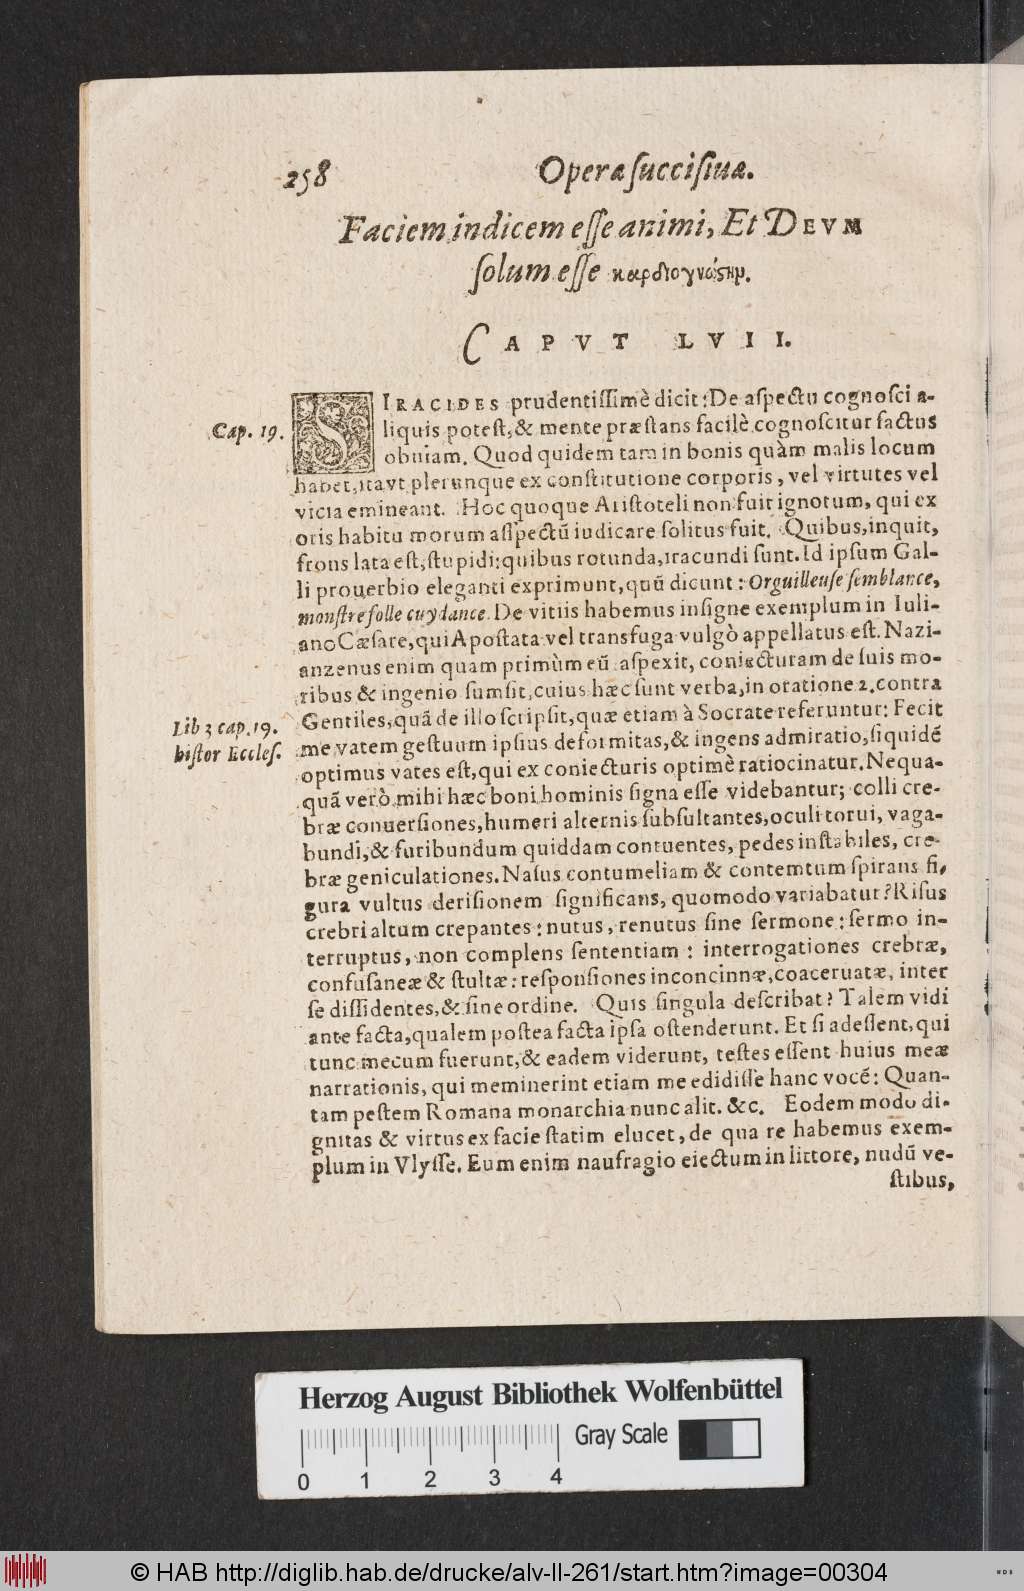 258 Operæ succisiuæ.
Faciem indicem esse animi, Et DEVM
solum esse καρδιογνώστην.
CAPVT LVII.
SIRACIDES prudentissimè dicit: De aspectu cognosci a-
Cap. 19.
liquis potest, & mente præstans facilè cognoscitur factus
obuiam. Quod quidem tam in bonis quàm malis locum
habet, itavt plerunque ex constitutione corporis, vel virtutes vel
vicia emineant. Hoc quoque Aristoteli non fuit ignotum, qui ex
oris habitu morum aspectū iudicare solitus fuit. Quibus, inquit,
frons lata est, stupidi: quibus rotunda, iracundi sunt. Id ipsum Gal-
li prouerbio eleganti exprimunt, quū dicunt: Orguilleuse semblance,
monstre folle cuydance. De vitiis habemus insigne exemplum in Iuli-
ano Cæsare, qui Apostata vel transfuga vulgò appellatus est. Nazi-
anzenus enim quam primùm eū aspexit, coniecturam de suis mo-
ribus & ingenio sumsit, cuius hæc sunt verba, in oratione 2. contra
Lib 3 cap. 19.
histor Eccles.
Gentiles, quā de illo scripsit, quæ etiam à Socrate referuntur: Fecit
me vatem gestuum ipsius deformitas, & ingens admiratio, siquidē
optimus vates est, qui ex coniecturis optimè ratiocinatur. Nequa-
quā verò mihi hæc boni hominis signa esse videbantur; colli cre-
bræ conuersiones, humeri alternis subsultantes, oculi torui, vaga-
bundi, & furibundum quiddam contuentes, pedes instabiles, cre-
bræ geniculationes. Nasus contumeliam & contemtum spirans fi-
gura vultus derisionem significans, quomodo variabatur? Risus
crebri altum crepantes: nutus, renutus sine sermone: sermo in-
terruptus, non complens sententiam: interrogationes crebræ,
confusaneæ & stultæ: responsiones inconcinnæ, coaceruatæ, inter
se dissidentes, & sine ordine. Quis singula describat? Talem vidi
ante facta, qualem postea facta ipsa ostenderunt. Et si adessent, qui
tunc mecum fuerunt, & eadem viderunt, testes essent huius meæ
narrationis, qui meminerint etiam me edidisse hanc vocē: Quan-
tam pestem Romana monarchia nunc alit. &c. Eodem modo di-
gnitas & virtus ex facie statim elucet, de qua re habemus exem-
plum in Vlysse. Eum enim naufragio eiectum in littore, nudū ve-
stibus,
Herzog August Bibliothek Wolfenbüttel
Gray Scale
0 1 2 3 4
© HAB http://diglib.hab.de/drucke/alv-ll-261/start.htm?image=00304